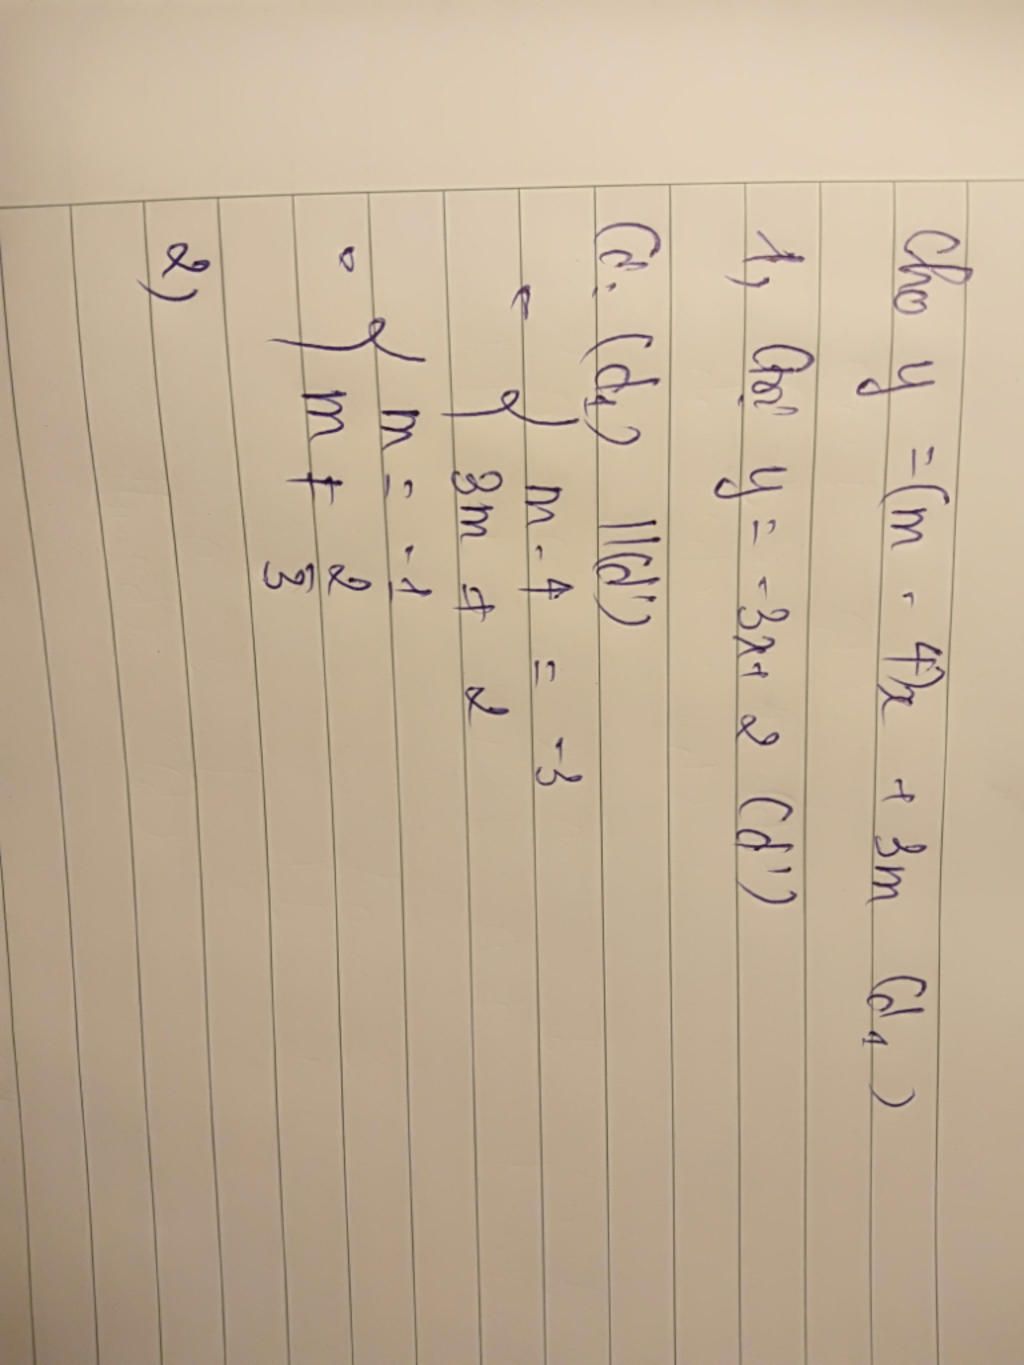 Cho y = (m - 4)x + 3m (d1)
1, Gọi y = -3x + 2 (d')
(d1) // (d')
m - 4 = -3
3m ≠ 2
m = -1
m ≠ 2/3
2)